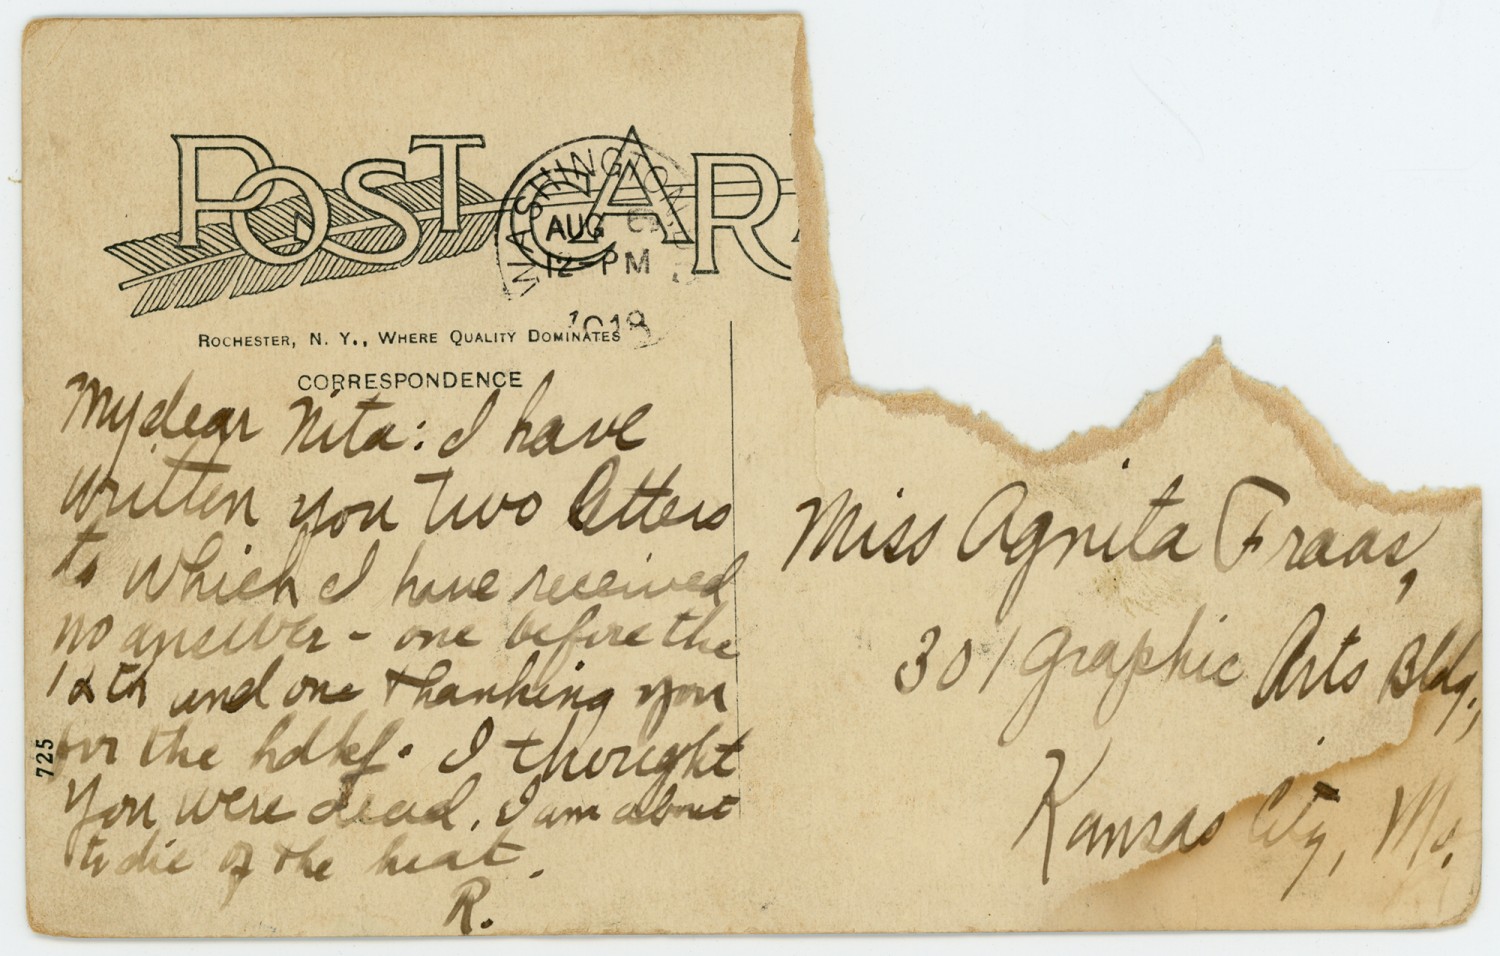 POST CAR
WASHINGTON
AUG
12-PM
1918
ROCHESTER, N. Y., WHERE QUALITY DOMINATES
CORRESPONDENCE
My dear Nita: I have
written you two letters
to which I have received
no answer - one before the
12th and one thanking you
for the hdkf. I thought
you were dead. I am about
to die of the heat.
R.
725
Miss Agnita Fraas,
301 Graphic Arts Bldg.,
Kansas City, Mo.